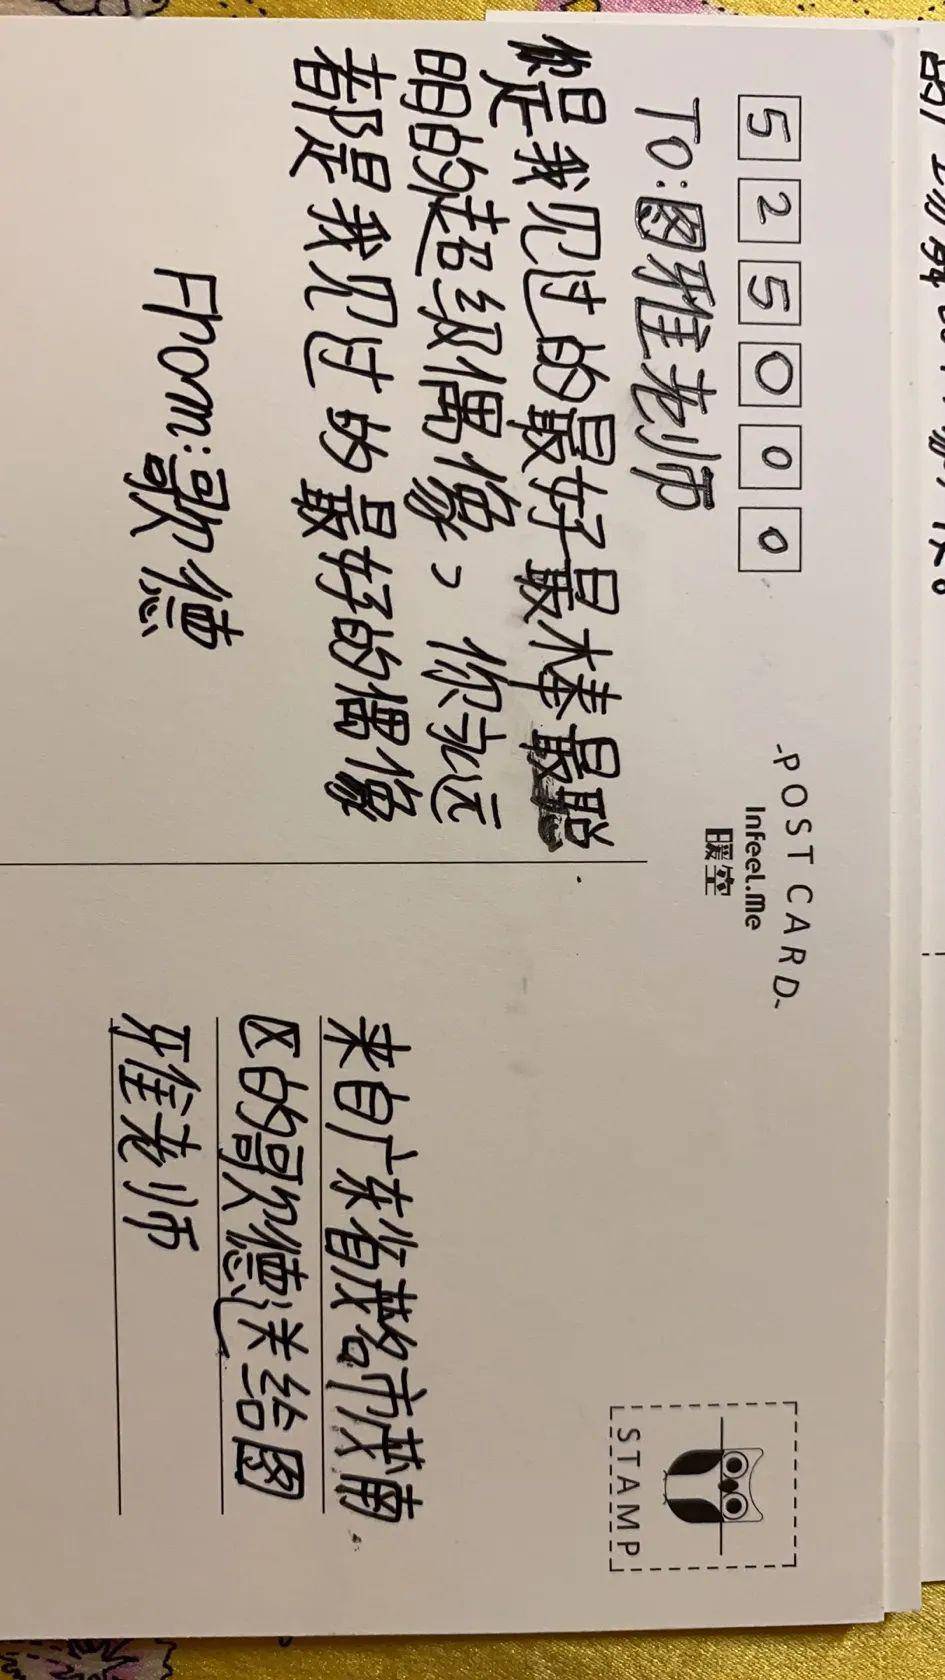 525000
-POSTCARD-
InFeeL.Me
暖空
To:图雅老师
你是我见过的最好最棒最聪
明的超级偶像，你永远
都是我见过的最好的偶像
From:歌德
来自广东省茂名市茂南
区的歌德送给图
雅老师
STAMP